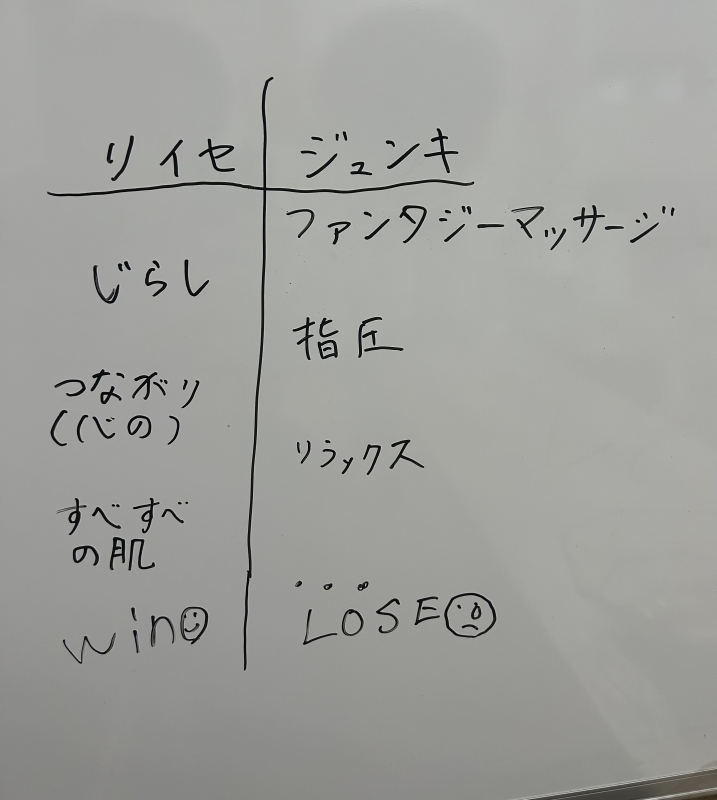 リイセ
ジュンキ
じらし
つながり
(心の)
すべすべ
の肌
win
ファンタジーマッサージ
指圧
リラックス
LOSE